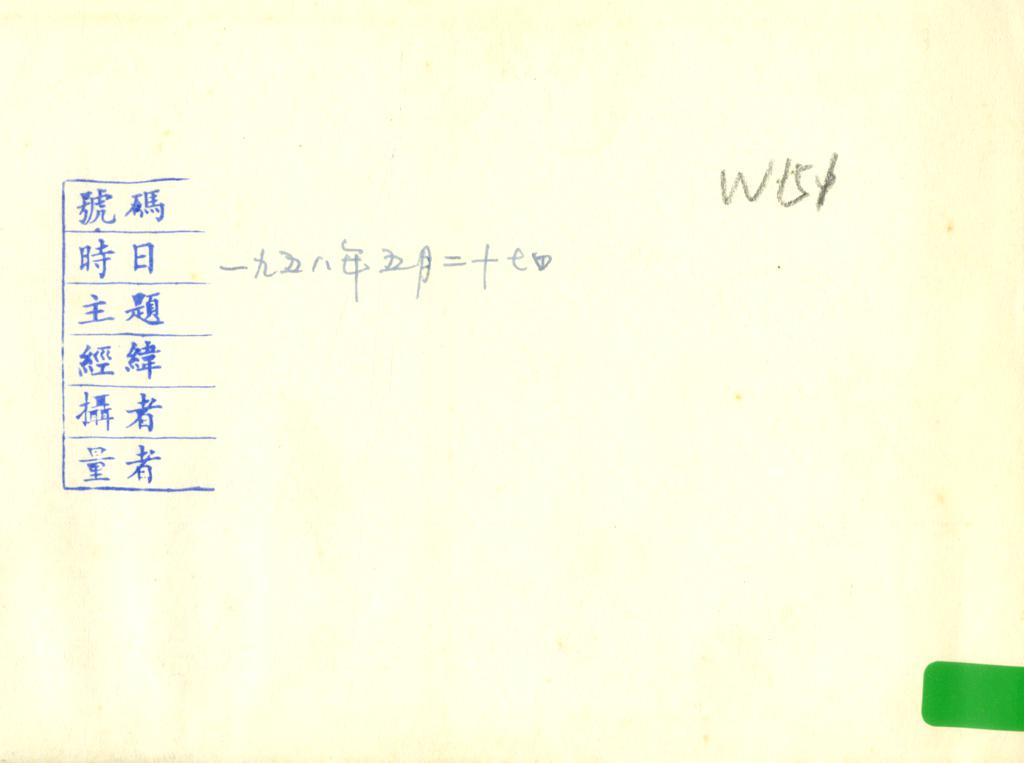 號碼
時日 一九五八年五月二十七日
主題
經緯
攝者
量者